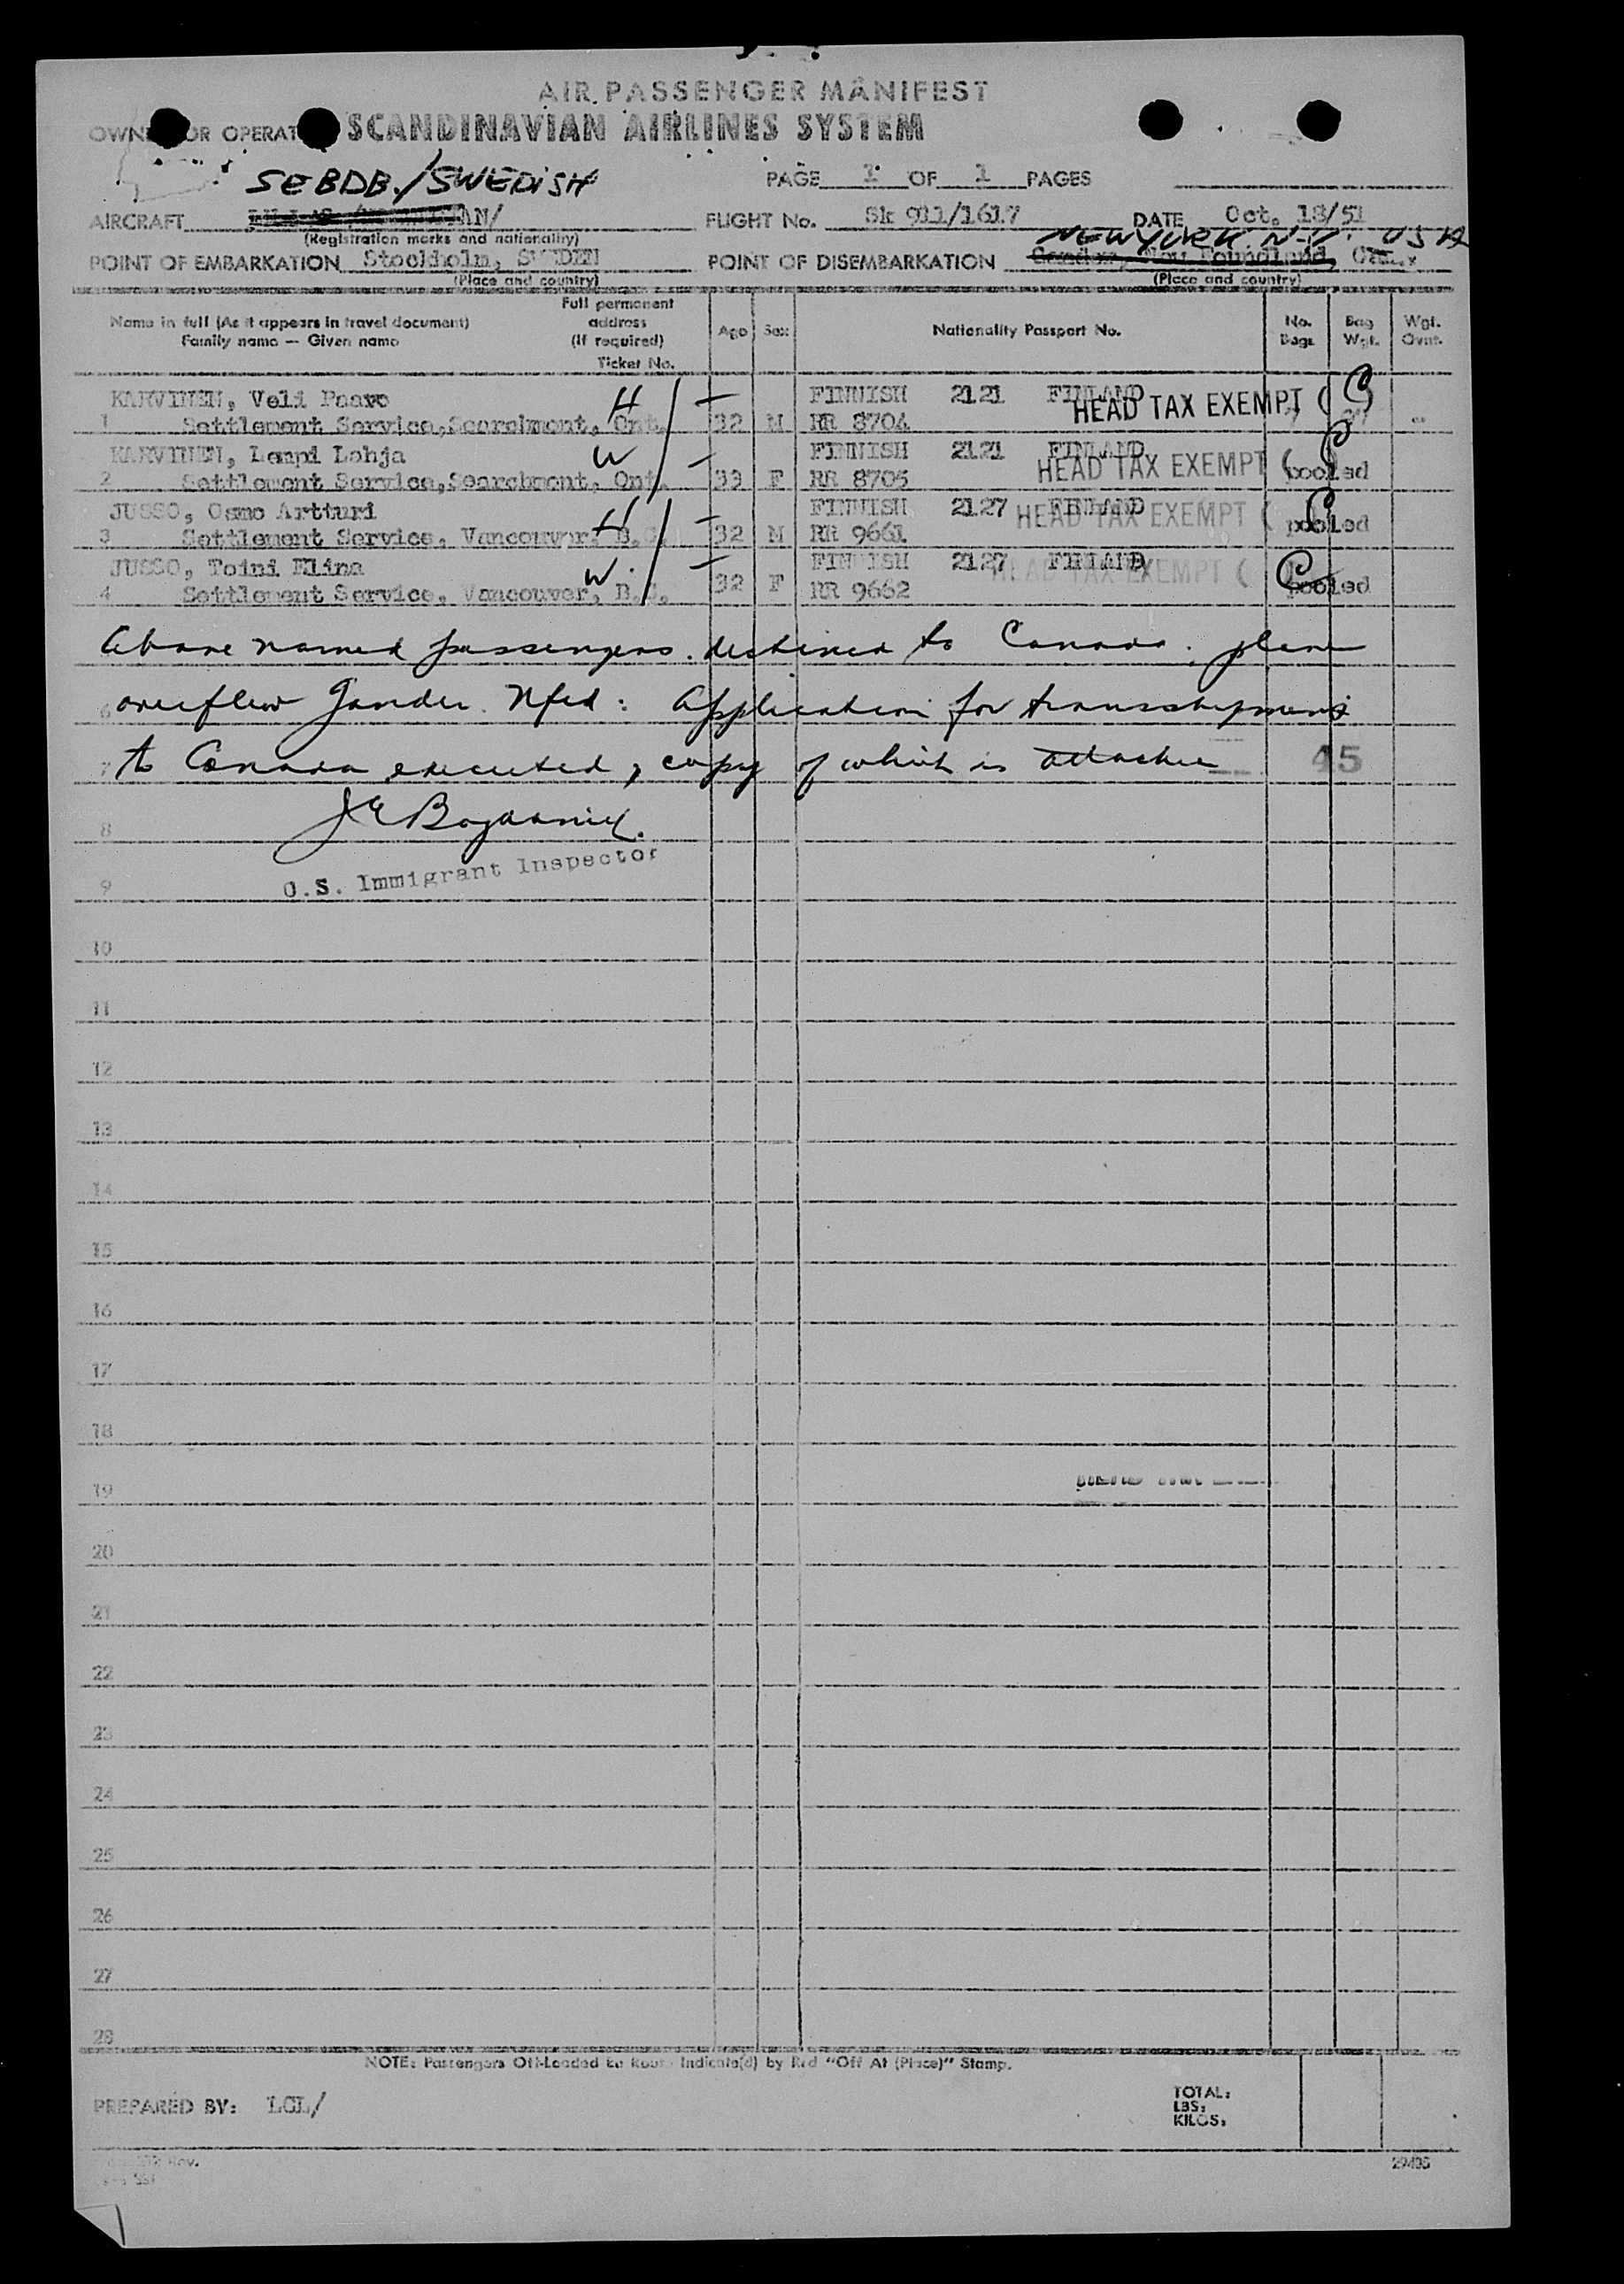 AIR PASSENGER MANIFEST
OWNER OR OPERATOR SCANDINAVIAN AIRLINES SYSTEM
SEBDB./SWEDISH
PAGE 1 OF 1 PAGES
AIRCRAFT FLIGHT No. SK 911/1617 DATE Oct. 18/51
(Registration marks and nationality) NEW YORK. N-Y. USA
POINT OF EMBARKATION Stockholm, SWEDEN POINT OF DISEMBARKATION Gander, New Foundland,
(Place and country) (Place and country)
Name in full (As it appears in travel document)
Family name — Given name
Full permanent
address
(If required)
Ticket No.
Age Sex Nationality Passport No. No. Bags Bag Wgt. Wgt. Ovnt.
KARVINEN, Veli Paavo H FINNISH 2121 FINLAND
HEAD TAX EXEMPT (
1 Settlement Service, Searchmont, Ont. 32 M RR 8704
KARVINEN, Lempi Lahja W FINNISH 2121 FINLAND
HEAD TAX EXEMPT (
2 Settlement Service, Searchmont, Ont. 33 F RR 8705 pooled
JUSSO, Osmo Artturi H FINNISH 2127 FINLAND
HEAD TAX EXEMPT (
3 Settlement Service, Vancouver, B.C. 32 M RR 9661 pooled
JUSSO, Toini Elina W. FINNISH 2127 FINLAND
HEAD TAX EXEMPT (
4 Settlement Service, Vancouver, B.C. 32 F RR 9662 pooled
Above named passengers destined to Canada; plane
6 overflew Gander Nfld: Application for transshipment
7 to Canada executed, copy of which is attached 45
8
U.S. Immigrant Inspector
9
10
11
12
13
14
15
16
17
18
19
20
21
22
23
24
25
26
27
28
NOTE: Passengers Off-Loaded En Route Indicate(d) by Red "Off At (Place)" Stamp.
PREPARED BY: LGL/
TOTAL:
LBS:
KILOS:
Rev.